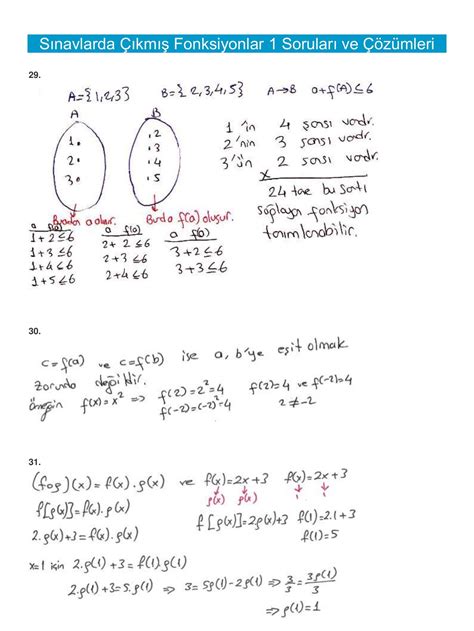 Sınavlarda Çıkmış Fonksiyonlar 1 Soruları ve Çözümleri
29.
A={1,2,3} B={2,3,4,5} A→B a+f(A)≤6
A B
1. .2
2. .3
3. .4
.5
1 'in 4 şansı vardır.
2 'nin 3 şansı vardır.
3 'ün 2 şansı vardır.
x
24 tane bu şartı
sağlayan fonksiyon
tanımlanabilir.
Buradan a olur. Burda f(a) oluşur.
a f(a) a f(a) a f(a)
1+2≤6 2+2≤6 3+2≤6
1+3≤6 2+3≤6 3+3≤6
1+4≤6 2+4≤6
1+5≤6
30.
c=f(a) ve c=f(b) ise a, b'ye eşit olmak
zorunda değildir.
örneğin f(x)=x² => f(2)=2²=4 f(2)=4 ve f(-2)=4
f(-2)=(-2)²=4 2≠-2
31.
(fog)(x)=f(x).g(x) ve f(x)=2x+3 f(x)=2x+3
g(x) g(x) 1 1
f[g(x)]=f(x).g(x) f[g(x)]=2g(x)+3 f(1)=2.1+3
2.g(x)+3=f(x).g(x) f(1)=5
x=1 için 2.g(1)+3=f(1).g(1)
2.g(1)+3=5.g(1) => 3=5g(1)-2g(1) => 3/3=3g(1)/3
=> g(1)=1